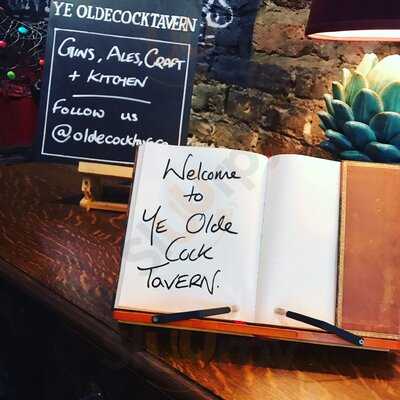 YE OLDECOCKTAVERN
GINS, ALES, CRAFT
+ KITCHEN
FOLLOW US
Welcome
to
YE Olde
Cock
TAVERN.